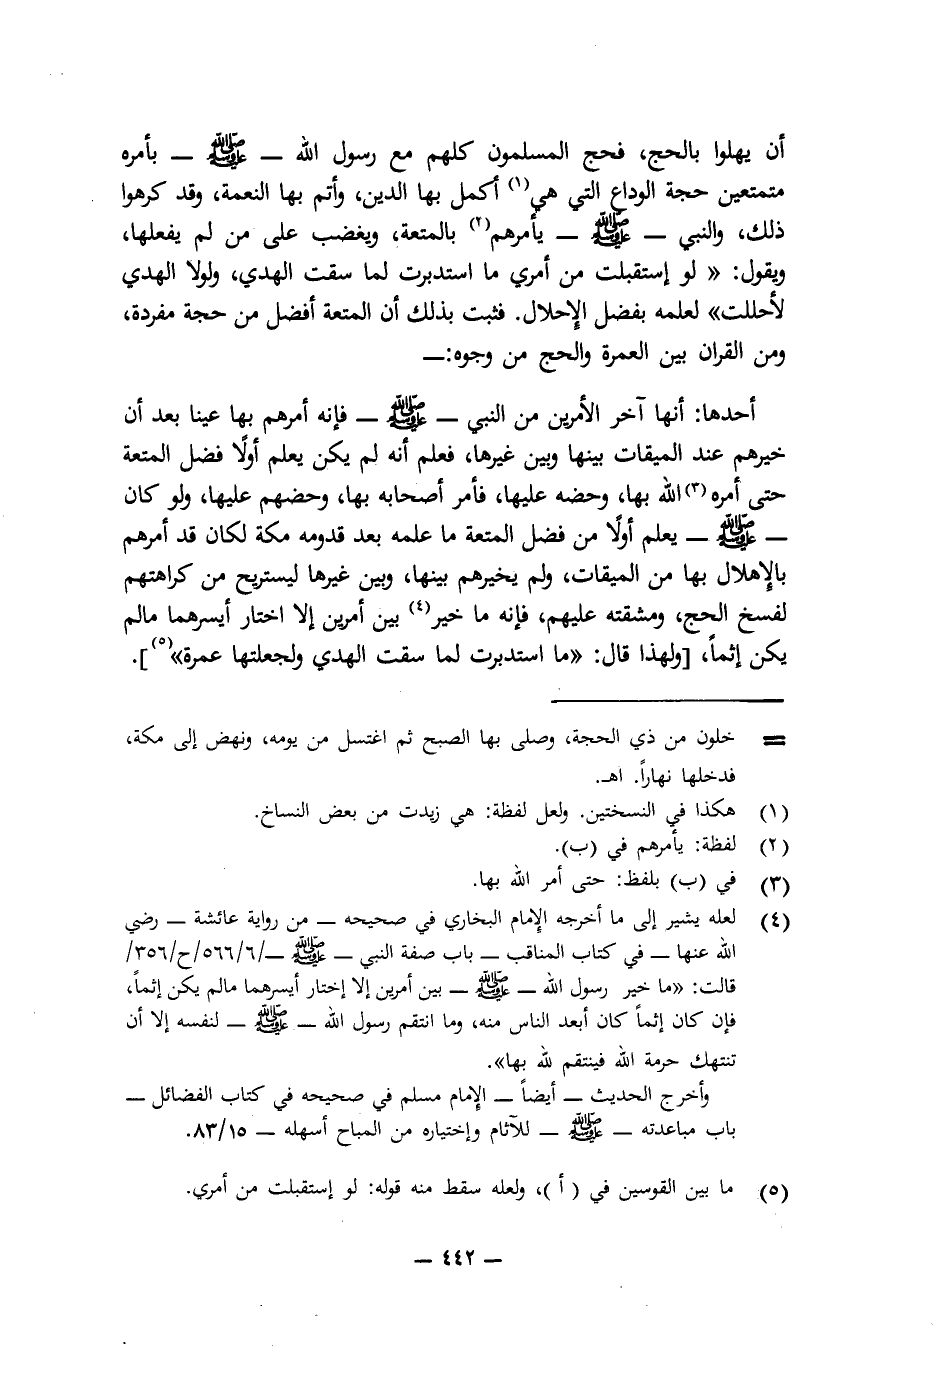 أن يهلوا بالحج، فحج المسلمون كلهم مع رسول الله ــ ﷺ ــ بأمره
متمتعين حجة الوداع التي هي(١) أكمل بها الدين، وأتم بها النعمة، وقد كرهوا
ذلك، والنبي ــ ﷺ ــ يأمرهم(٢) بالمتعة، ويغضب على من لم يفعلها،
ويقول: « لو إستقبلت من أمري ما استدبرت لما سقت الهدي، ولولا الهدي
لأحللت» لعلمه بفضل الإحلال. فثبت بذلك أن المتعة أفضل من حجة مفردة،
ومن القران بين العمرة والحج من وجوه:ــ
أحدها: أنها آخر الأمرين من النبي ــ ﷺ ــ فإنه أمرهم بها عينا بعد أن
خيرهم عند الميقات بينها وبين غيرها، فعلم أنه لم يكن يعلم أولًا فضل المتعة
حتى أمره(٣) الله بها، وحضه عليها، فأمر أصحابه بها، وحضهم عليها، ولو كان
ــ ﷺ ــ يعلم أولًا من فضل المتعة ما علمه بعد قدومه مكة لكان قد أمرهم
بالإهلال بها من الميقات، ولم يخيرهم بينها، وبين غيرها ليستريح من كراهتهم
لفسخ الحج، ومشقته عليهم، فإنه ما خير(٤) بين أمرين إلا اختار أيسرهما مالم
يكن إثماً، [ولهذا قال: «ما استدبرت لما سقت الهدي ولجعلتها عمرة»(٥)].
= خلون من ذي الحجة، وصلى بها الصبح ثم اغتسل من يومه، ونهض إلى مكة،
فدخلها نهاراً. اهـ.
(١) هكذا في النسختين. ولعل لفظة: هي زيدت من بعض النساخ.
(٢) لفظة: يأمرهم في (ب).
(٣) في (ب) بلفظ: حتى أمر الله بها.
(٤) لعله يشير إلى ما أخرجه الإمام البخاري في صحيحه ــ من رواية عائشة ــ رضي
الله عنها ــ في كتاب المناقب ــ باب صفة النبي ــ ﷺ ــ/٥٦٦/٦/ح/٣٥٦/
قالت: «ما خير رسول الله ــ ﷺ ــ بين أمرين إلا إختار أيسرهما مالم يكن إثماً،
فإن كان إثماً كان أبعد الناس منه، وما انتقم رسول الله ــ ﷺ ــ لنفسه إلا أن
تنتهك حرمة الله فينتقم لله بها».
وأخرج الحديث ــ أيضاً ــ الإمام مسلم في صحيحه في كتاب الفضائل ــ
باب مباعدته ــ ﷺ ــ للآثام وإختياره من المباح أسهله ــ ٨٣/١٥.
(٥) ما بين القوسين في ( أ )، ولعله سقط منه قوله: لو إستقبلت من أمري.
ــ ٤٤٢ ــ